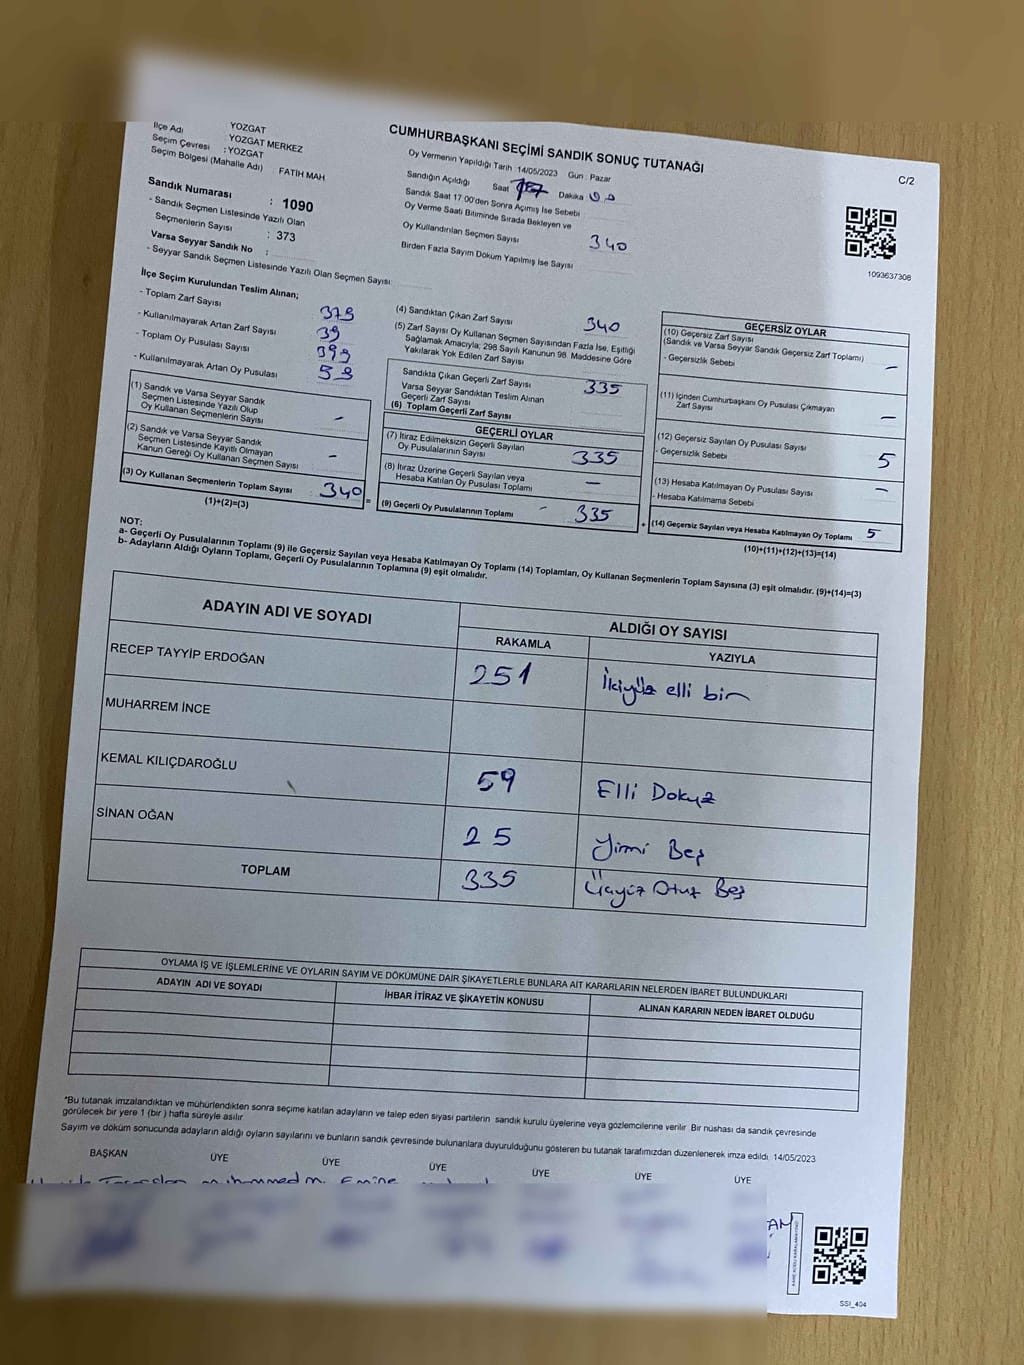 YOZGAT
İlçe Adı : YOZGAT MERKEZ
Seçim Çevresi : YOZGAT
Seçim Bölgesi (Mahalle Adı) FATİH MAH
Sandık Numarası : 1090
- Sandık Seçmen Listesinde Yazılı Olan
Seçmenlerin Sayısı : 373
Varsa Seyyar Sandık No :
- Seyyar Sandık Seçmen Listesinde Yazılı Olan Seçmen Sayısı:
CUMHURBAŞKANI SEÇİMİ SANDIK SONUÇ TUTANAĞI
C/2
Oy Vermenin Yapıldığı Tarih 14/05/2023 Gün : Pazar
Sandığın Açıldığı Saat 17 Dakika
Sandık Saat 17.00'den Sonra Açımış İse Sebebi
Oy Verme Saati Bitiminde Sırada Bekleyen ve
Oy Kullandırılan Seçmen Sayısı 340
Birden Fazla Sayım Döküm Yapılmış İse Sayısı
1093637308
İlçe Seçim Kurulundan Teslim Alınan;
- Toplam Zarf Sayısı 379
- Kullanılmayarak Artan Zarf Sayısı 39
- Toplam Oy Pusulası Sayısı 399
- Kullanılmayarak Artan Oy Pusulası 59
(1) Sandık ve Varsa Seyyar Sandık
Seçmen Listesinde Yazılı Olup
Oy Kullanan Seçmenlerin Sayısı -
(2) Sandık ve Varsa Seyyar Sandık
Seçmen Listesinde Kayıtlı Olmayan
Kanun Gereği Oy Kullanan Seçmen Sayısı -
(3) Oy Kullanan Seçmenlerin Toplam Sayısı 340 =
(1)+(2)=(3)
(4) Sandıktan Çıkan Zarf Sayısı 340
(5) Zarf Sayısı Oy Kullanan Seçmen Sayısından Fazla İse, Eşitliği
Sağlamak Amacıyla; 298 Sayılı Kanunun 98. Maddesine Göre
Yakılarak Yok Edilen Zarf Sayısı
Sandıkta Çıkan Geçerli Zarf Sayısı 335
Varsa Seyyar Sandıktan Teslim Alınan
Geçerli Zarf Sayısı
(6) Toplam Geçerli Zarf Sayısı
GEÇERLİ OYLAR
(7) İtiraz Edilmeksizin Geçerli Sayılan
Oy Pusulalarının Sayısı 335
(8) İtiraz Üzerine Geçerli Sayılan veya
Hesaba Katılan Oy Pusulası Toplamı -
(9) Geçerli Oy Pusulalarının Toplamı - 335 +
GEÇERSİZ OYLAR
(10) Geçersiz Zarf Sayısı
(Sandık ve Varsa Seyyar Sandık Geçersiz Zarf Toplamı)
- Geçersizlik Sebebi -
(11) İçinden Cumhurbaşkanı Oy Pusulası Çıkmayan
Zarf Sayısı -
(12) Geçersiz Sayılan Oy Pusulası Sayısı
- Geçersizlik Sebebi 5
(13) Hesaba Katılmayan Oy Pusulası Sayısı -
- Hesaba Katılmama Sebebi
(14) Geçersiz Sayılan veya Hesaba Katılmayan Oy Toplamı 5
(10)+(11)+(12)+(13)=(14)
NOT:
a- Geçerli Oy Pusulalarının Toplamı (9) ile Geçersiz Sayılan veya Hesaba Katılmayan Oy Toplamı (14) Toplamları, Oy Kullanan Seçmenlerin Toplam Sayısına (3) eşit olmalıdır. (9)+(14)=(3)
b- Adayların Aldığı Oyların Toplamı, Geçerli Oy Pusulalarının Toplamına (9) eşit olmalıdır.
ADAYIN ADI VE SOYADI
ALDIĞI OY SAYISI
RAKAMLA YAZIYLA
RECEP TAYYİP ERDOĞAN 251 İkiyüz elli bir
MUHARREM İNCE
KEMAL KILIÇDAROĞLU 59 Elli Dokuz
SİNAN OĞAN 25 Yirmi Beş
TOPLAM 335 Üçyüz Otuz Beş
OYLAMA İŞ VE İŞLEMLERINE VE OYLARIN SAYIM VE DÖKÜMÜNE DAİR ŞİKAYETLERLE BUNLARA AİT KARARLARIN NELERDEN İBARET BULUNDUKLARI
ADAYIN ADI VE SOYADI İHBAR İTİRAZ VE ŞİKAYETİN KONUSU ALINAN KARARIN NEDEN İBARET OLDUĞU
*Bu tutanak imzalandıktan ve mühürlendikten sonra seçime katılan adayların ve talep eden siyasi partilerin sandık kurulu üyelerine veya gözlemcilerine verilir. Bir nüshası da sandık çevresinde
görülecek bir yere 1 (bir ) hafta süreyle asılır.
Sayım ve döküm sonucunda adayların aldığı oyların sayılarını ve bunların sandık çevresinde bulunanlara duyurulduğunu gösteren bu tutanak tarafımızdan düzenlenerek imza edildi. 14/05/2023
BAŞKAN ÜYE ÜYE ÜYE ÜYE ÜYE ÜYE
SSI_404